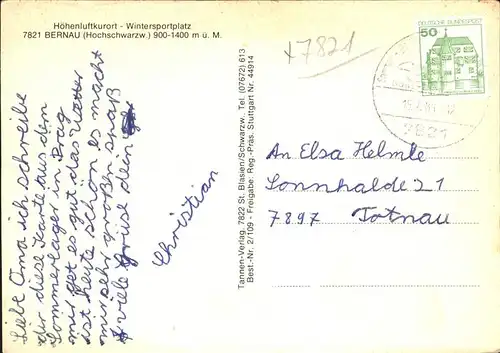 Höhenluftkurort - Wintersportplatz
7821 BERNAU (Hochschwarzw.) 900-1400 m ü. M.
x7821
DEUTSCHE BUNDESPOST
50
7821
Liebe Oma ich schreibe
dir diese Karte aus dem
Sommerlager in Prag
mir get es gut das Wetter
ist heute schön es macht
mir sehr großen spaß
viele Grüse dein
Christian
Tannen-Verlag, 7822 St. Blasien/Schwarzw. Tel. (07672) 613
Best.-Nr. 2/109 - Freigabe: Reg.-Präs. Stuttgart Nr. 44914
An Elsa Helmle
Sonnhalde 21
7897 Totnau